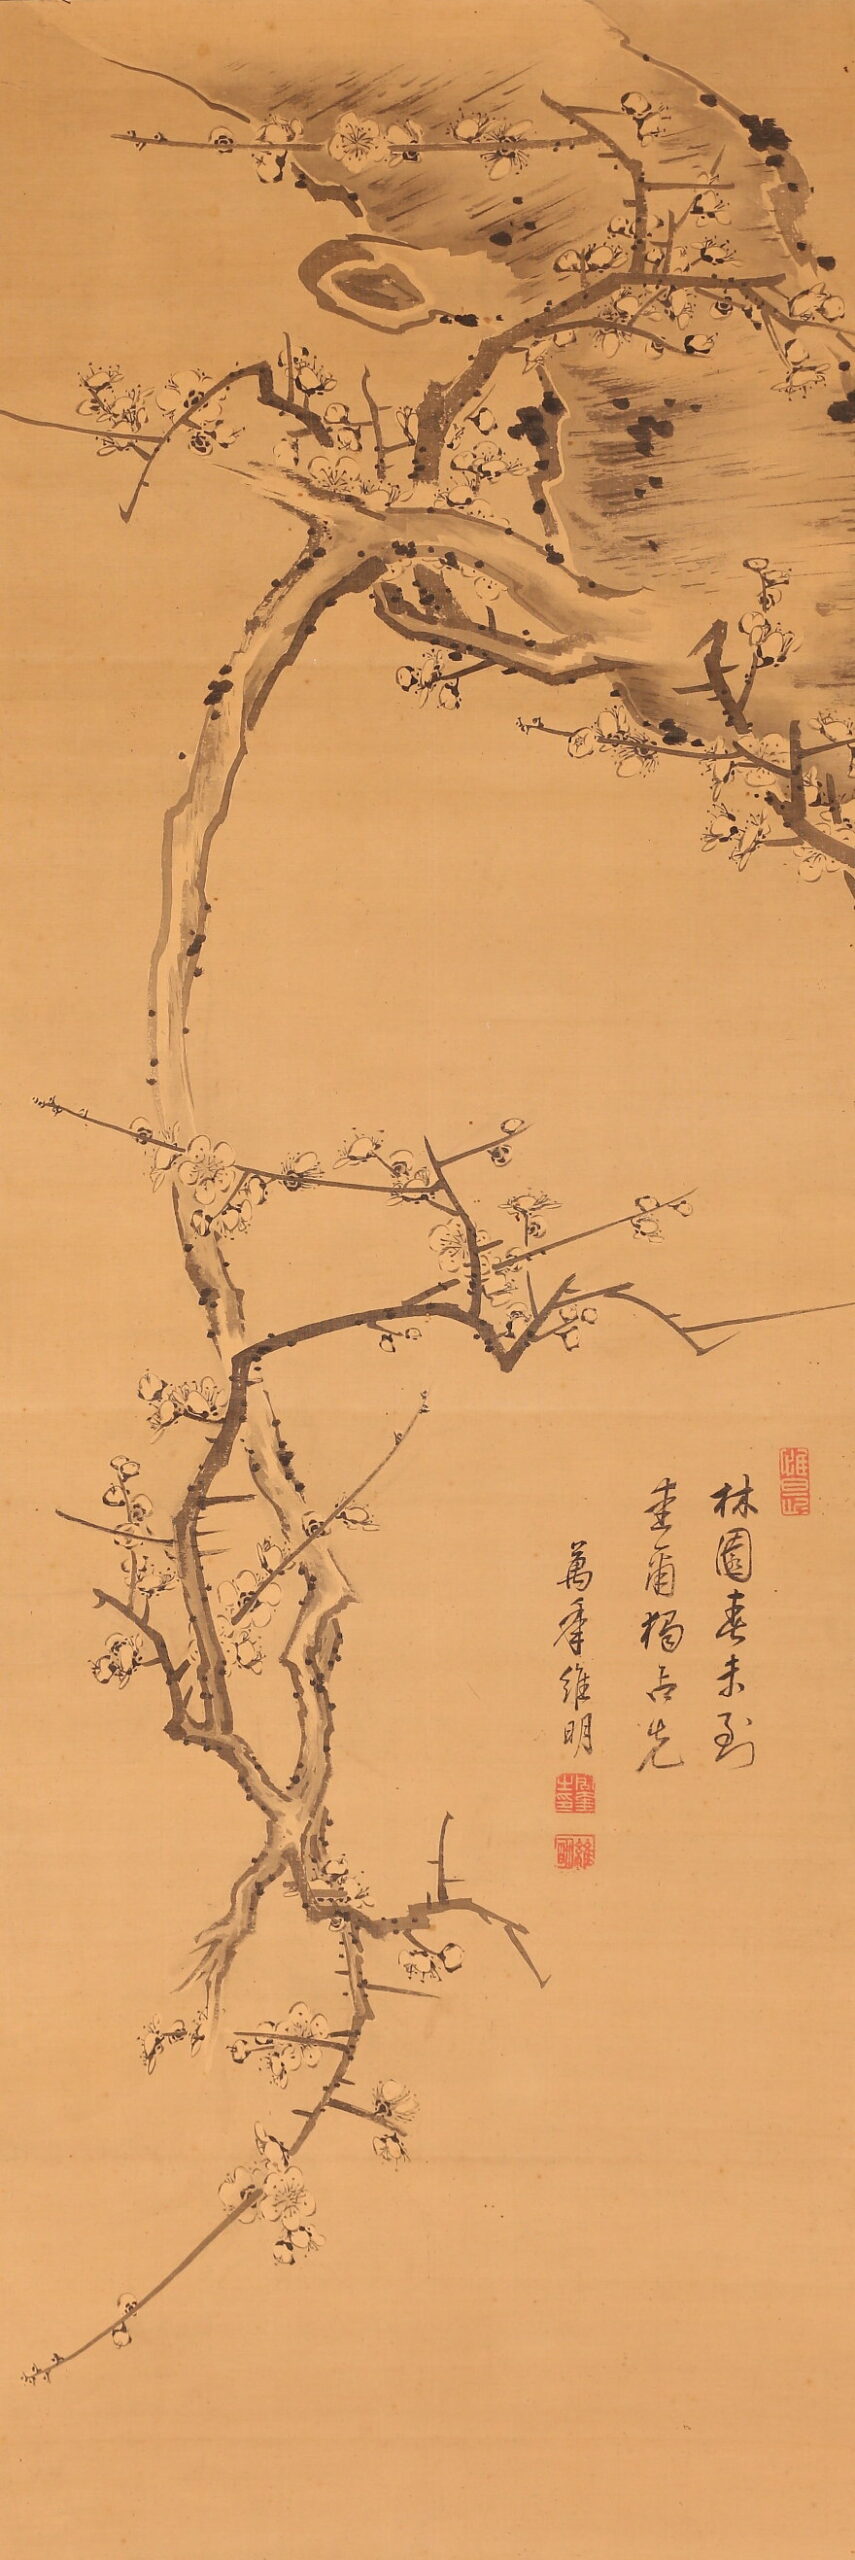 林園春未到
尔獨占先
萬年維明
維明